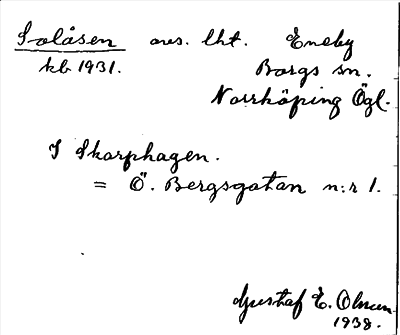 Solåsen avs. lht. Eneby
kb 1931. Borgs sn.
Norrköping Ögl.
I Skarphagen.
= Ö. Bergsgatan n:r 1.
Gustaf E. Olsson
1938.